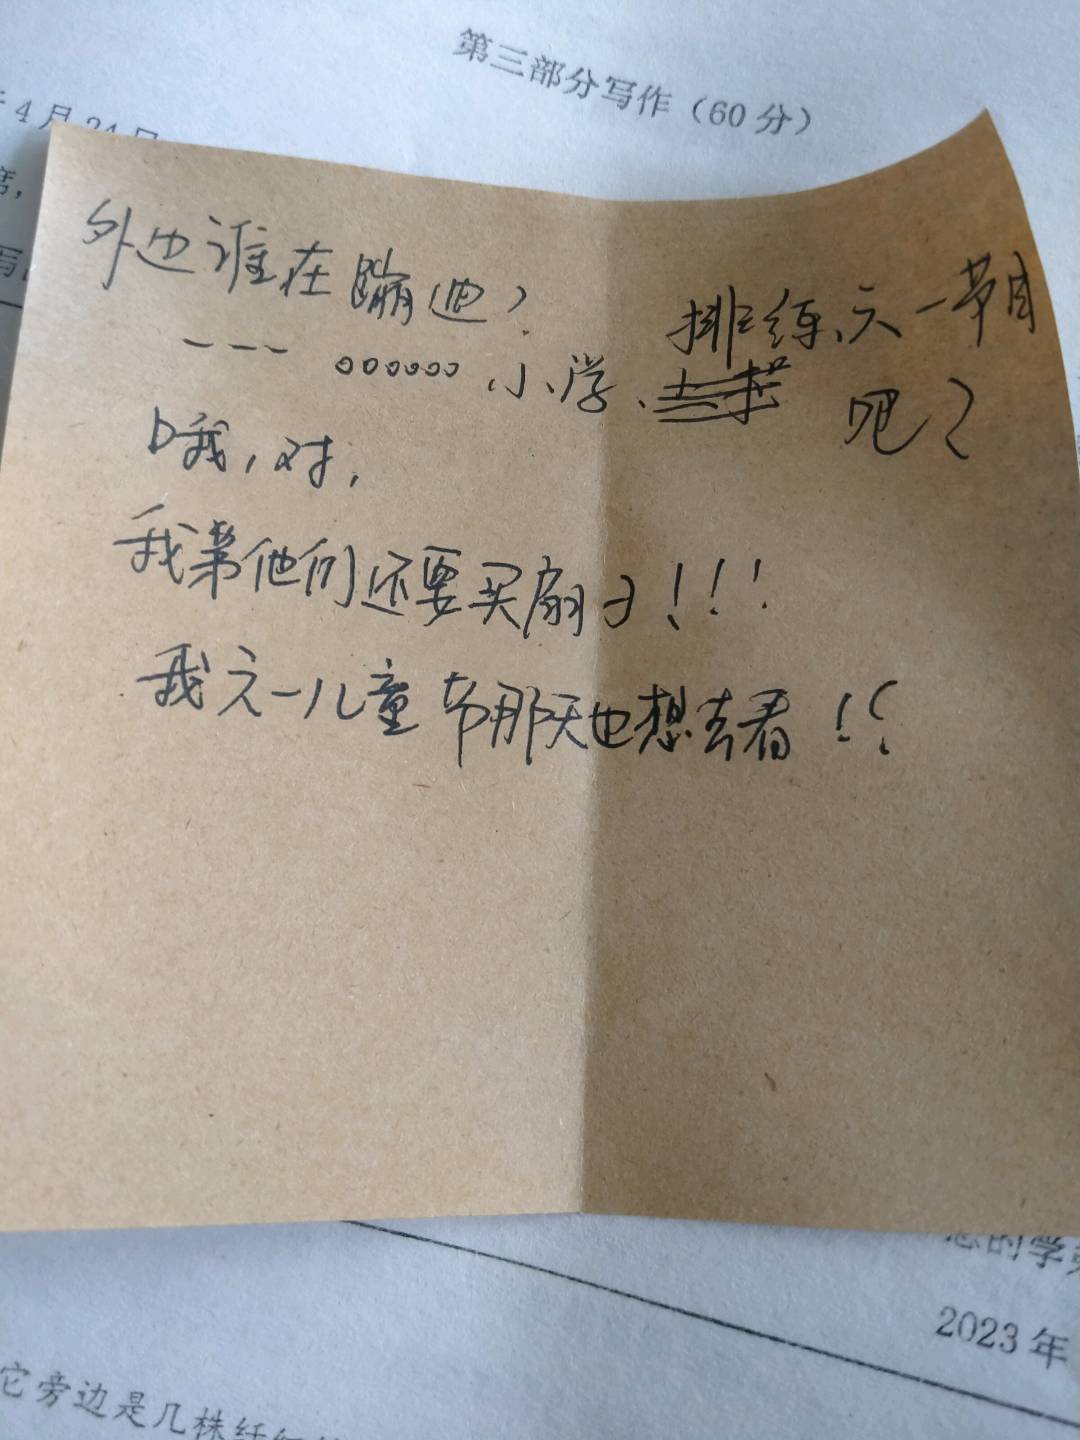 第三部分写作（60分）
4月24日
外边谁在蹦迪？
--- 。。。。。。小学、
排练六一节目
吧？
哦，对，
我弟他们还要买扇子！！！
我六一儿童节那天也想去看！！
您的学
2023年
它旁边是几株